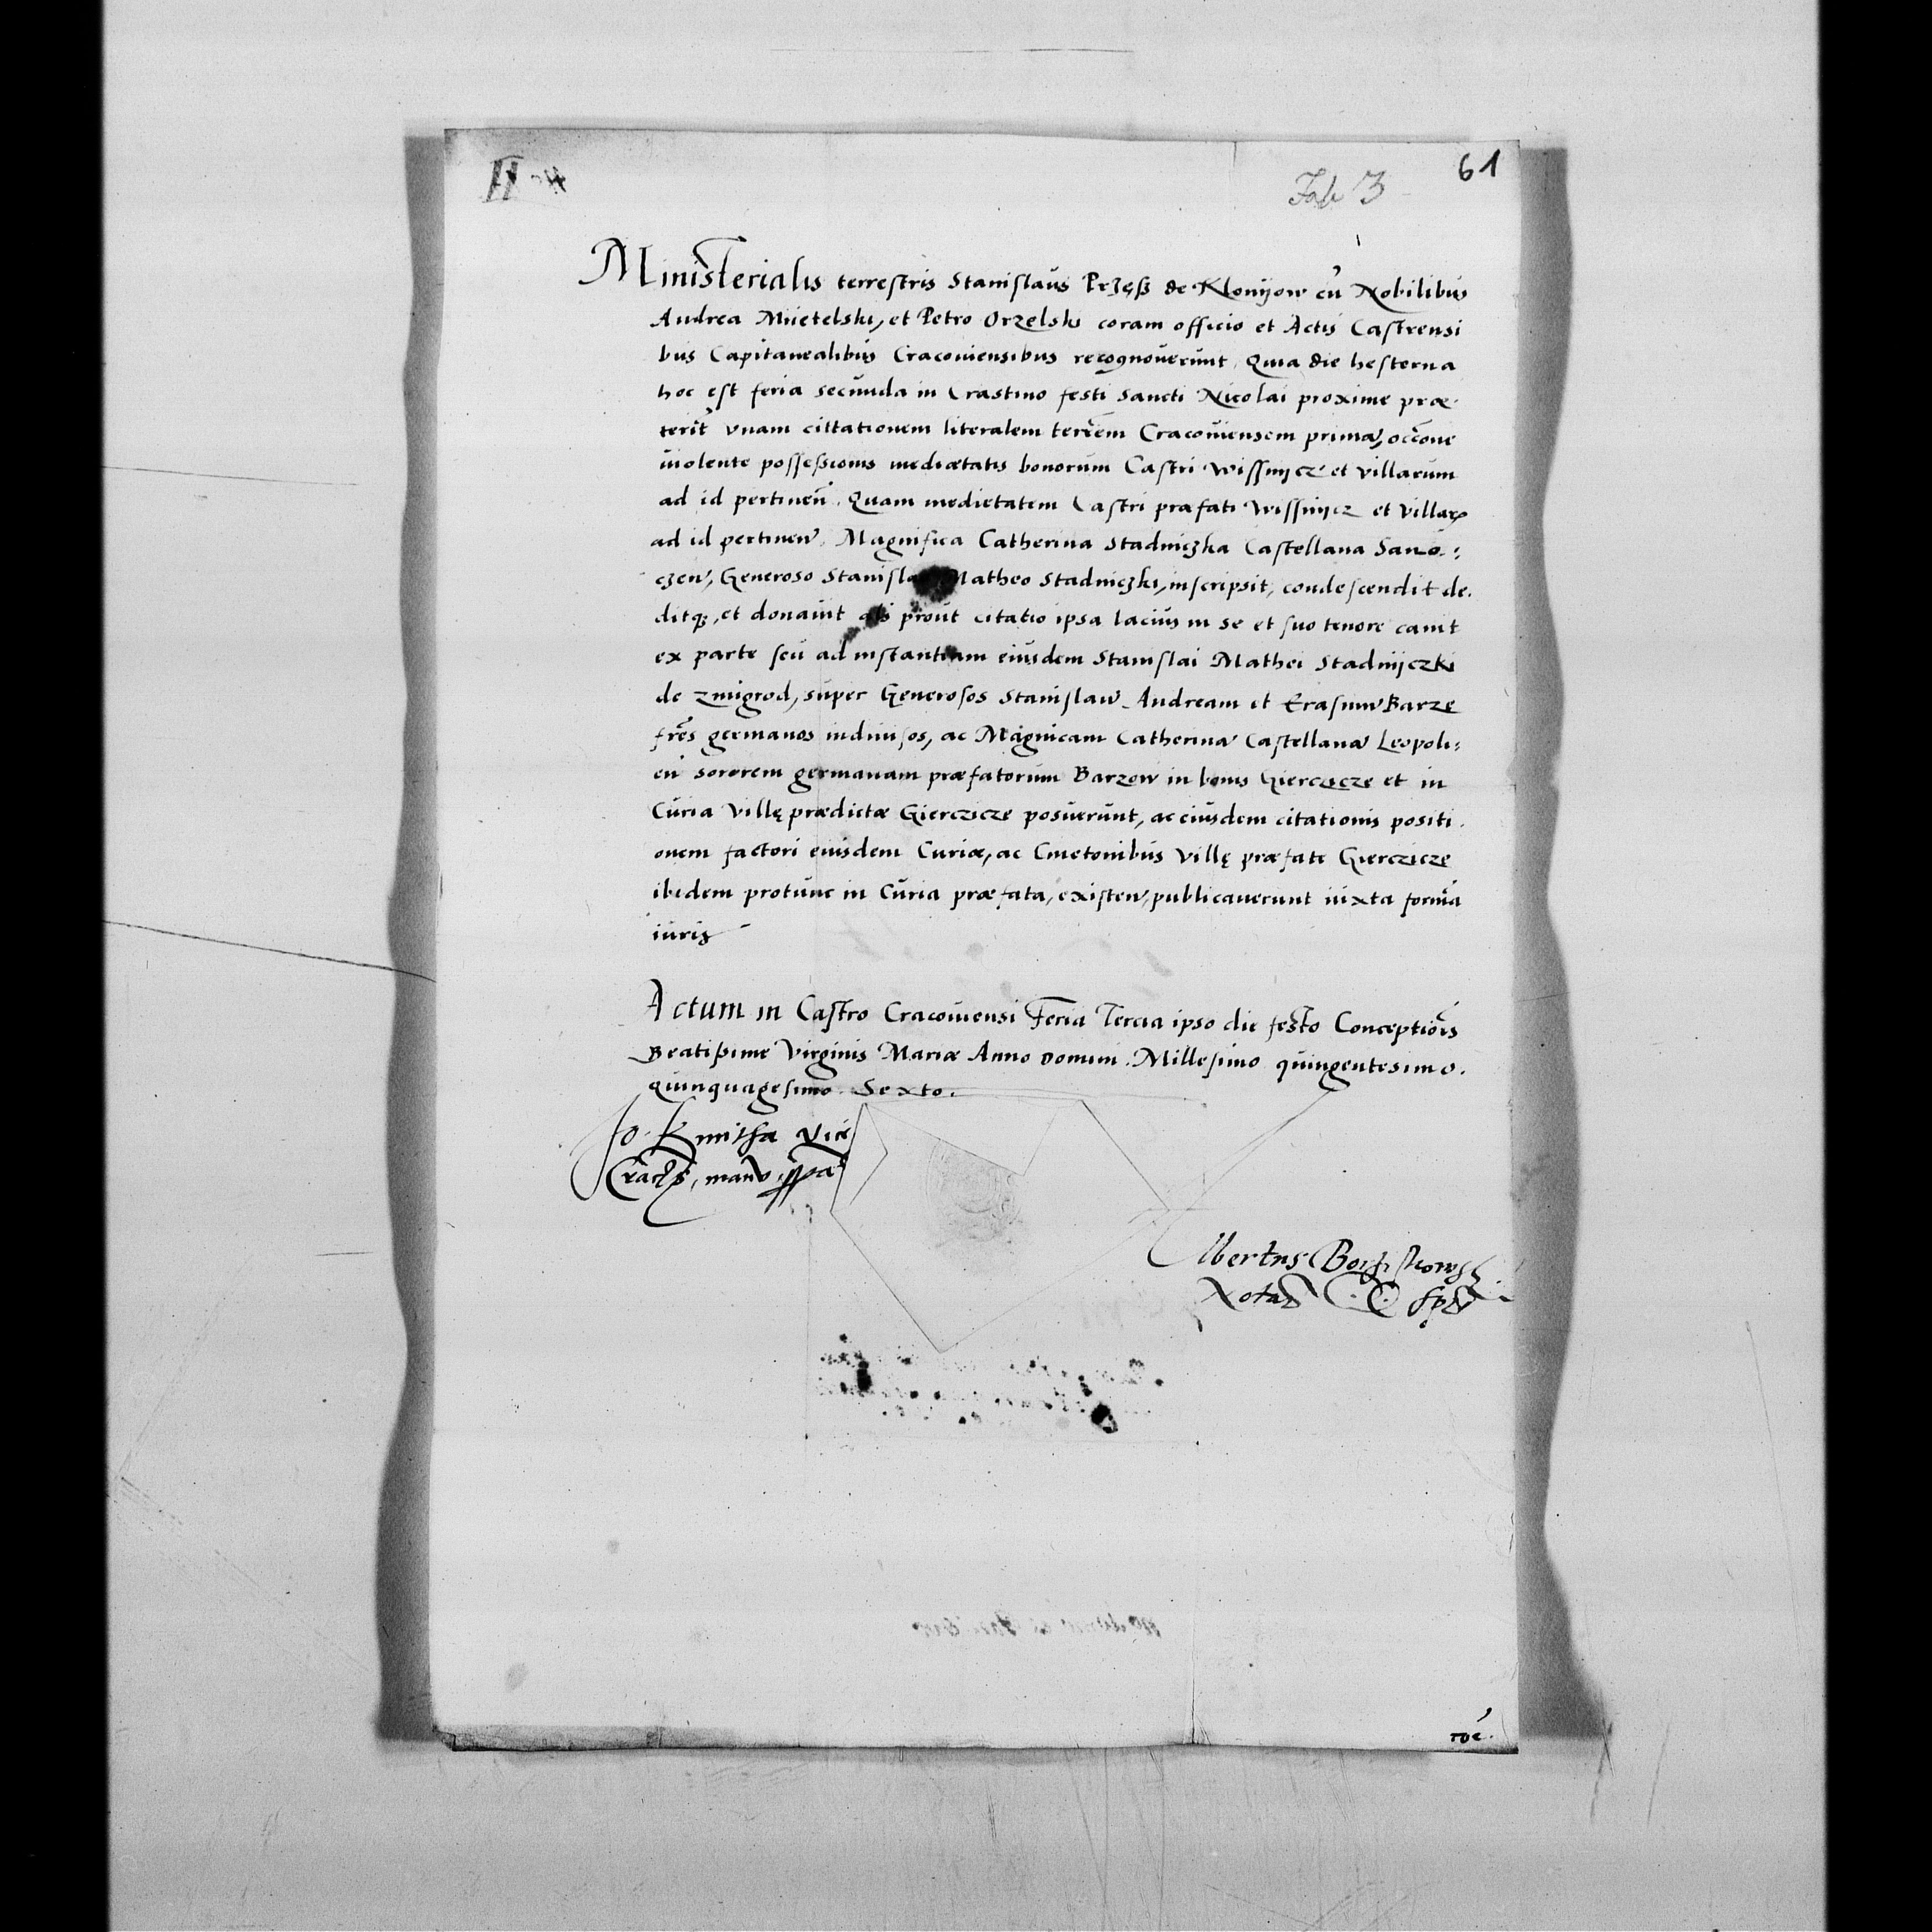 61
Fab 3
Ministerialis terrestris Stanislaus Przęß de Klonijow cu̅ Nobilibus
Andrea Miietelski, et Petro Orzelski coram officio et Actis Castrensi
bus Capitanealibus Cracouiensibus recognouerunt, Quia die hesterna
hoc est feria secunda in Crastino festi Sancti Nicolai proxime præ
terit̅ vnam cittationem literalem terrem̅ Cracouiensem prima̅, occ̅one
uiolente possessionis mediætatis bonorum Castri Wissnijcz et villarum
ad id pertinen̅. Quam medietatem Castri præfati Wissnijcz et villarꝝ
ad id pertinen̅, Magnifica Catherina Stadniczka Castellana Sano:
czen̅, Generoso Stanisla Matheo Stadniczki, inscripsit, condescendit de.
ditqꝫ, et donauit prout citatio ipsa lacius in se et suo tenore canit
ex parte seu ad instantiam eiusdem Stanislai Mathei Stadnijczki
de Zmigrod, super Generosos Stanislaw̅ Andream et Erasmu̅ Barze
fr̅es germanos indiuisos, ac Mag̅nicam Catherina̅ Castellana̅ Leopoli:
en̅ sororem germanam præfatorum Barzow in bonis Gierczicze et in
Curia Villę prædictæ Gierczicze posuerunt, ac eiusdem citationis positi.
onem factori eiusdem Curiæ, ac Cmetonibus Villę præfate Gierczicze
ibidem protunc in Curia præfata, existen̅, publicauerunt iuxta forma̅
iuris
Actum in Castro Cracouiensi Feria Tercia ipso die festo Conceptio̅is
Beatißime Virginis Mariæ Anno Domini. Millesimo quingentesimo.
quinquagesimo. Sexto.
Jo. Kmitha Vice
manu ppa
Albertus
Notar